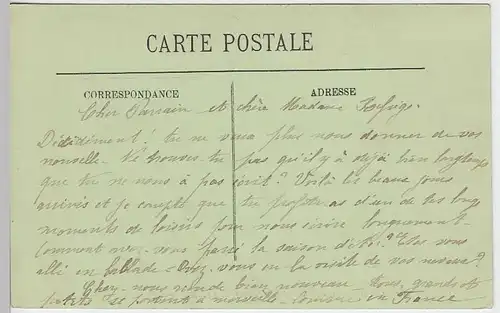 CARTE POSTALE
CORRESPONDANCE
ADRESSE
Cher Parrain et chère Madame
Décidément! tu ne veux plus nous donner de vos
nouvelle. Ne trouves tu pas qu'il y à déjà bien longtemps
que tu ne nous à pas écrit? Voilà les beaux jours
arrivés et je compte que tu profiteras d'un de tes longs
moments de loisirs pour nous écrire longuement.
Comment avez-vous passé la saison d'été? Etes vous
allé en ballade. vous eu la visite de vos neveux?
Chez-nous rien de bien nouveau. tous, grands et
petits se portent à merveille. en France